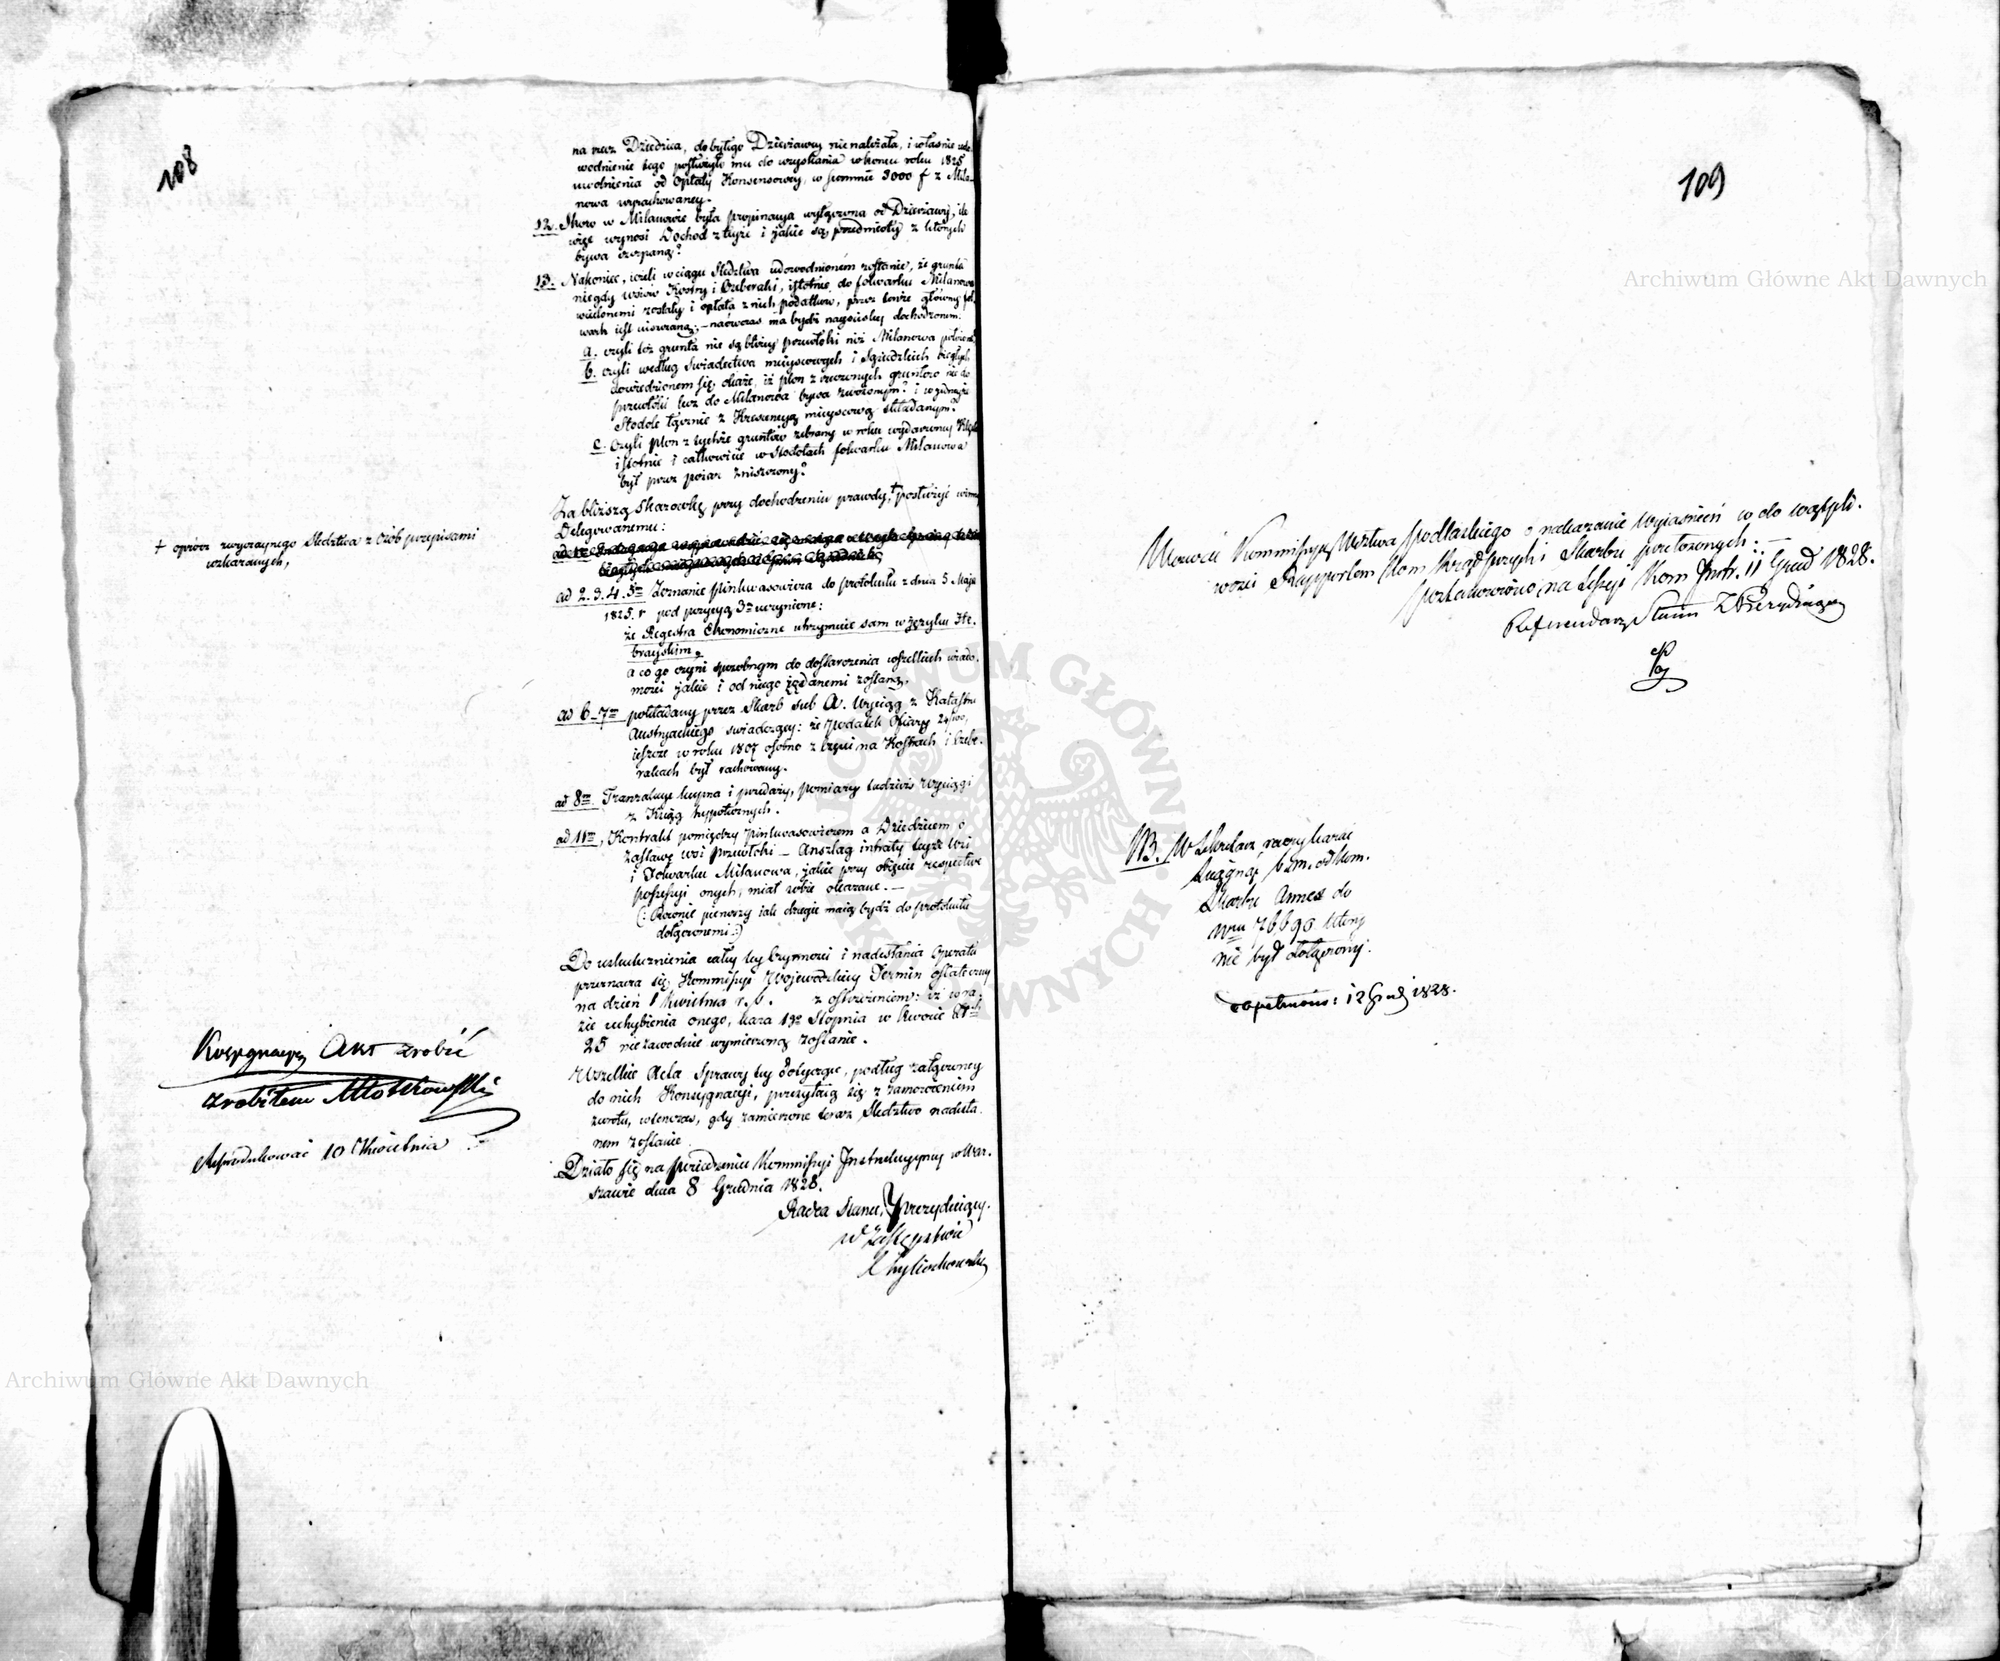 108
na rzecz Dziedzica, do byłego Dzierżawcy nie należała, i właśnie udo-
wodnienie tego posłużyło mu do uzyskania w końcu roku 1825
uwolnienia od Opłaty Konsensowey, w summie 3000 f z Mila-
nowa wyrachowaney.
12. Skoro w Milanowie była propinacya wyłączona od Dzierżawy, ile
więc wynosi Dochod z teyże i jakie są przedmioty z których
bywa czerpany?
13. Nakoniec, ieżeli w ciągu Śledztwa udowodnionem zostanie, że grunta
niegdy wsiów Kostry i Czeberaki, istotnie do folwarku Milanowa
wcielonemi zostały i opłata z nich podatków, przez tenże główny fol-
wark iest uiszczaną; – naówczas ma bydź nayściśley dochodzonem:
a. czyli też grunta nie są bliżey przewłoki niż Milanowa położone
b. czyli według Świadectwa mieyscowych i Sąsiedzkich biegłych
dowiedzionem się okaże, iż plon z rzeczonych gruntów nie do
przewłoki lecz do Milanowa bywa zwożonym? i w gumnie
Stodole łącznie z Krescencyą mieyscową składanym?
c. Czyli plon z tychże gruntów zebrany w roku wydarzoney Klęski
istotnie i całkowicie w Stodołach folwarku Milanowa
był przez pożar zniszczony?
Za bliższą Skazówkę przy dochodzeniu prawdy, + posłużyć winny
Delegowanemu:
+ oprócz zwyczaynego Śledztwa z Osób przepisami
wskazanych,
ad 2. 3. 4. 5m Zeznanie Pinkwasowicza do protokułu z dnia 5 Maja
1825. r pod pozycyą 3 uczynione:
że Regestra Ekonomiczne utrzymuie sam w języku He-
brayskim,
a co go czyni sposobnym do dostarczenia wszelkich wiado-
mości jakie i od niego żądanemi zostaną.
ad 6-7m pokładany przez Skarb sub A. Wyciąg z Katastru
Austryackiego świadczący: że Podatek Ofiary 24/100,
ieszcze w roku 1807 osobno z części na Kostrach i Czebe-
rakach był rachowany.
ad 8m. Tranzakcye kupna i przedaży, pomiary tudzież Wyciągi
z Ksiąg hyppotecznych.
ad 11m, Kontrakt pomiędzy Pinkwasowiczem a Dziedzicem o
zastawę wsi Przewłoki – Anszlag intraty teyże wsi
i Folwarku Milanowa, jakie przy obięciu respective
possessyi onych, miał sobie okazane. –
(: Równie pierwszy iak drugie maią bydź do protokułu
dołączonemi :)
Do uskutecznienia całey tey Czynności i nadesłania Operatu
przeznacza się Kommissyi Wojewódzkiey Termin ostateczny
na dzień 1 Kwietnia r. b. z ostrzeżeniem: iż w ra-
zie uchybienia onego, kara 1go Stopnia w kwocie Złt
25 niezawodnie wymierzoną zostanie.
Wszelkie Acta Sprawy tey dotyczące, podług załączoney
do nich Konsygnacyi, przesyłaią się z zamówieniem
zwrotu, wówczas, gdy zamierzone teraz Śledztwo nadesła-
nem zostanie.
Działo się na posiedzeniu Kommissyi Instrukcyyney w War-
szawie dnia 8 Grudnia 1828.
Radca Stanu, Prezyduiący.
w Zastępstwie
Konsygnacyę Akt zrobić
zrobiłem Młotkowski
Reprodukować 10 Kwietnia
109
Wezwać Kommissyę Wdztwa Podlaskiego o nakazanie wyiaśnień co do wątpli-
wości Rapportem Kom Rząd Przych i Skarbu przełożonych: –
Postanowiono na Sessyi Kom Instr. 11 Grud 1828.
Referendarz Stanu Prezyduiący
NB. W Sekretar
Skarbu Annex do
Nru 76690 który
nie był dołączony.
dopełniono: 12 Grud 1828.
Archiwum Główne Akt Dawnych
Archiwum Główne Akt Dawnych